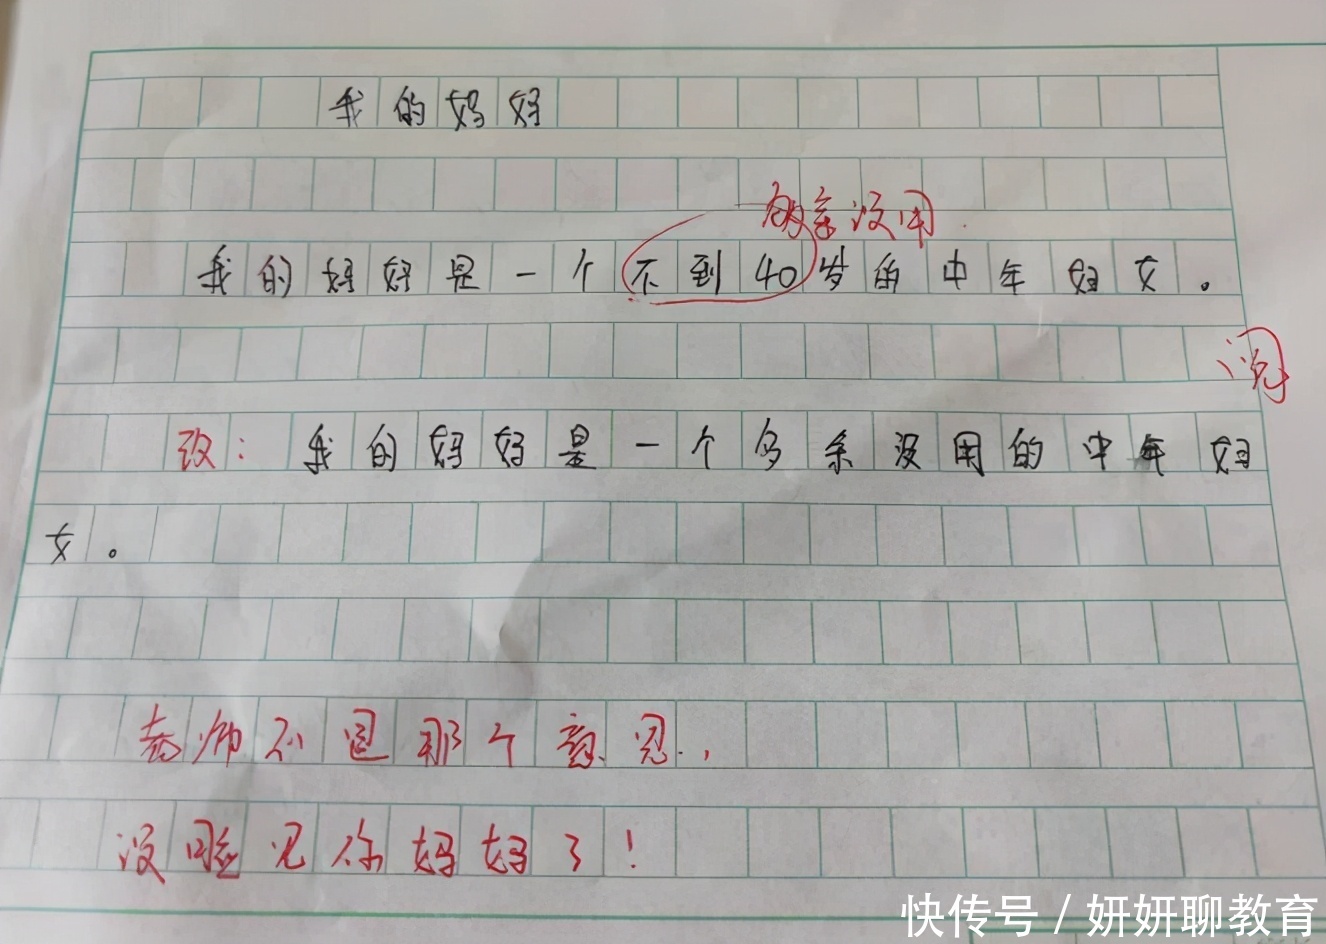 我的妈妈
多余没用
我的妈妈是一个不到40岁的中年妇女。
阅
改：我的妈妈是一个多余没用的中年妇
女。
老师不是那个意思，
没脸见你妈妈了！
快传号 / 妍妍聊教育